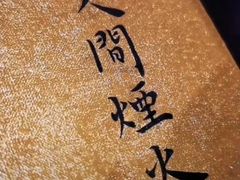 人間煙火